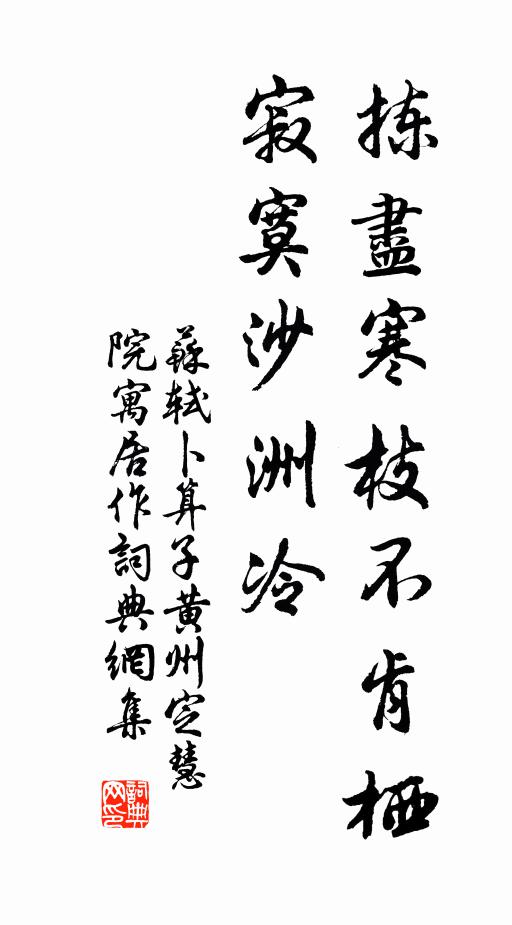 揀盡寒枝不肯栖
寂寞沙洲冷
蘇軾卜算子黃州定慧
院寓居作詞典網集
詞典
网印